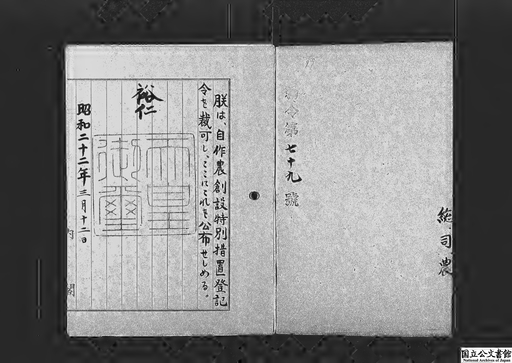 総司農
勅令第七十九號
朕は、自作農創設特別措置登記
令を裁可し、ここにこれを公布せしめる。
裕仁
天皇御璽
昭和二十二年三月十二日
内閣
国立公文書館
National Archives of Japan